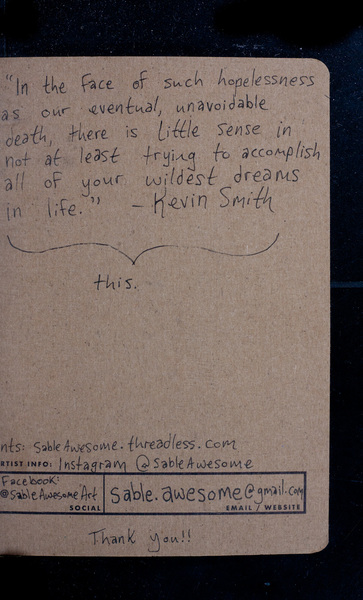 "In the face of such hopelessness
as our eventual, unavoidable
death, there is little sense in
not at least trying to accomplish
all of your wildest dreams
in life." - Kevin Smith
this.
nts: SableAwesome.threadless.com
RTIST INFO: Instagram @SableAwesome
Facebook:
@SableAwesomeArt
SOCIAL
sable.awesome@gmail.com
EMAIL / WEBSITE
Thank you!!